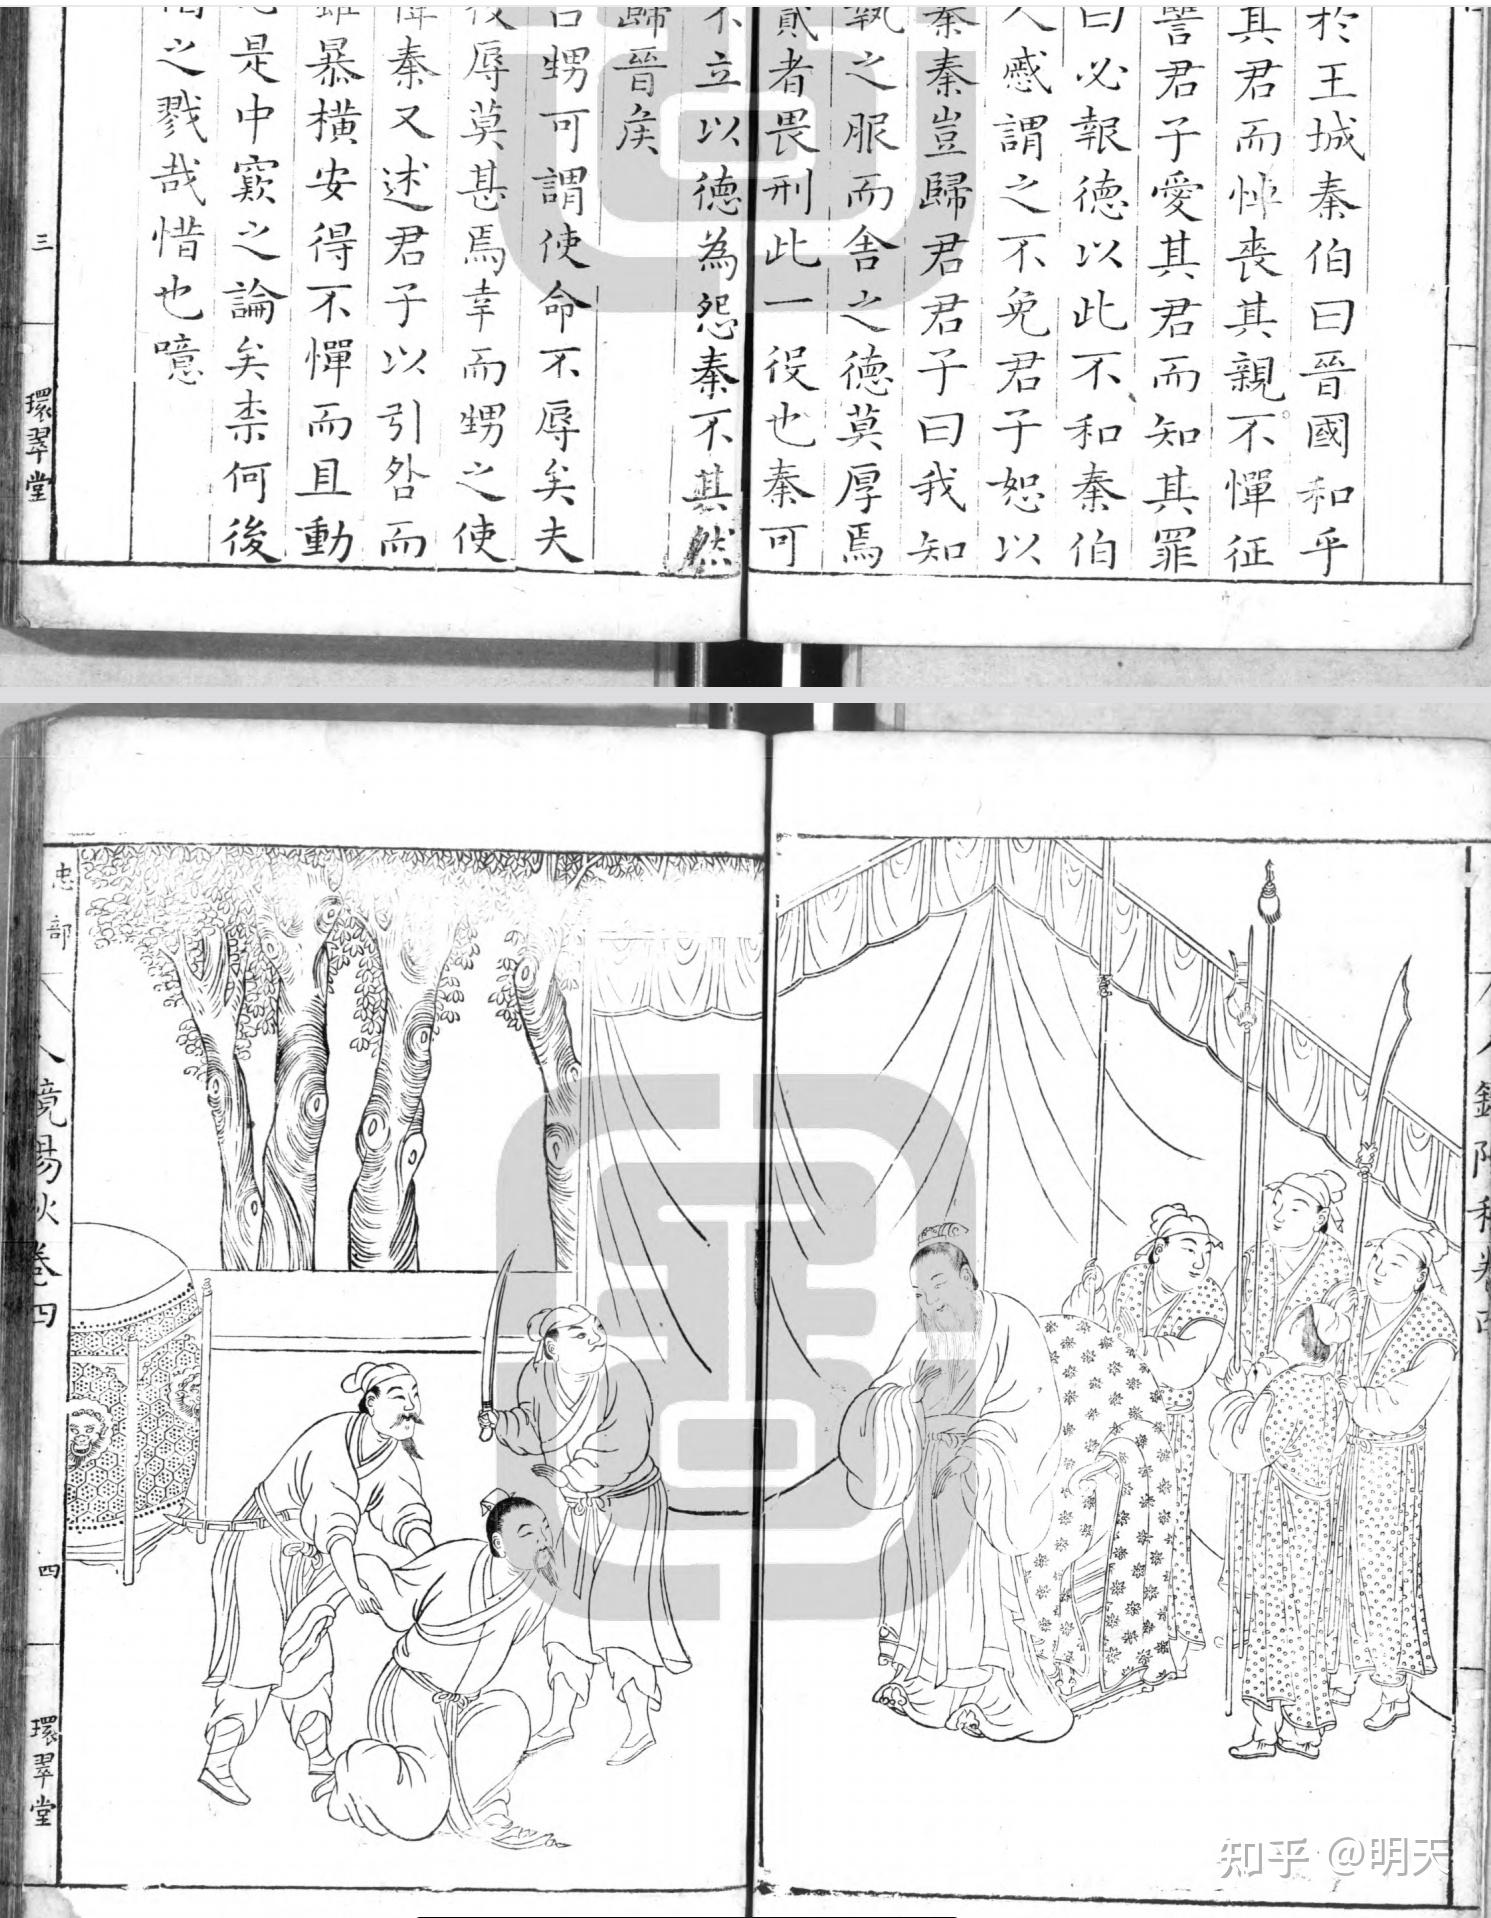 於王城秦伯曰晉國和乎
其君而悼喪其親不憚征
讐君子愛其君而知其罪
曰必報德以此不和秦伯
人慼謂之不免君子恕以
秦秦豈歸君君子曰我知
執之服而舍之德莫厚焉
貳者畏刑此一役也秦可
不立以德為怨秦不其然
歸晉矦
呂甥可謂使命不辱矣夫
辱莫甚焉幸而甥之使
秦又述君子以引咎而
雖暴橫安得不憚而且動
是中窾之論矣柰何後
之戮哉惜也噫
三
環翠堂
忠部
人鏡陽秋卷四
四
環翠堂
知乎 @明天